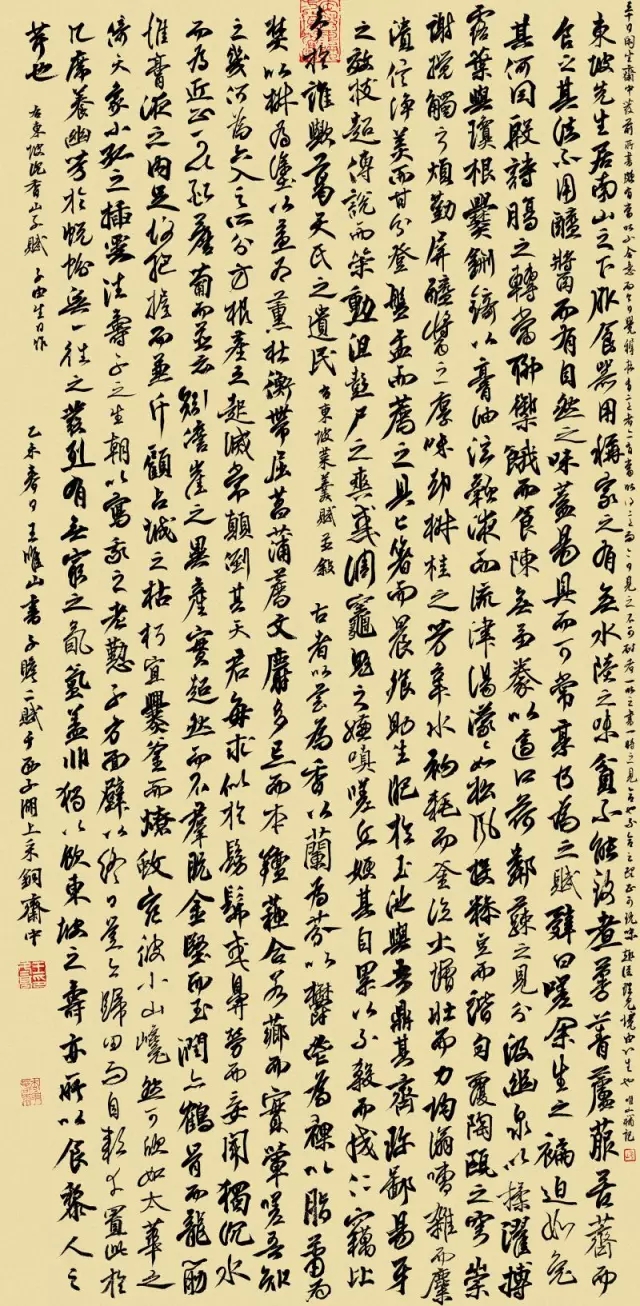 東坡先生居南山之下服食器用稱家之有無水陸之味貧不能致煮蔓菁蘆菔苦薺而
食之其法不用醯醬而有自然之味蓋易具而可常享乃為之賦辭曰嗟余生之褊迫如兔
其何因殷詩腸之轉雷聊禦餓而食陳無芻豢以適口荷鄰蔬之見分汲幽泉以揉濯搏
露葉與瓊根爨鉶錡以膏油泫融液而流津湯濛濛如松風投糝豆而諧勻覆陶甌之穹崇
謝攪觸之煩勤屏醯醬之厚味卻椒桂之芳辛水初耗而釜泣火增壯而力均滃嘈雜而麋
潰信淨美而甘分登盤盂而薦之具匕箸而晨飧助生肥於玉池與吾鼎其齊珍鄙易牙
之效技超傅說而策勳沮彭尸之爽惑調竈鬼之嫌嗔嗟丘嫂其自累以不殺而成仁竊比
予於誰歟葛天氏之遺民 右東坡菜羹賦並敘 古者以芸為香以蘭為芬以鬱鬯為祼以脂蕭為
焚以椒為塗以蕙為薰杜衡帶屈菖蒲薦文麝多忌而本羶蘇合若薌而實葷嗟吾知
之幾何為六入之所分方根塵之起滅常顛倒其天君每求似於髣髴或鼻勞而妄聞獨沉水
而為近正可以配薝蔔而並云矧儋崖之異產實超然而不群既金堅而玉潤亦鶴骨而龍筋
惟膏液之內足故把握而兼斤顧占城之枯朽宜爨釜而燎蚊宛彼小山巉然可欣如太華之
倚天象小孤之插雲往壽子之生朝以寫我之老懃子方面壁以終日豈亦歸田而自耘幸置此於
几席養幽芳於帨帉無一往之發烈有無窮之氤氳蓋非獨以飲東坡之壽亦所以食黎人之
芹也 右東坡沉香山子賦 子由生日作 乙未春日王唯山書子瞻二賦于西子湖上采銅齋中